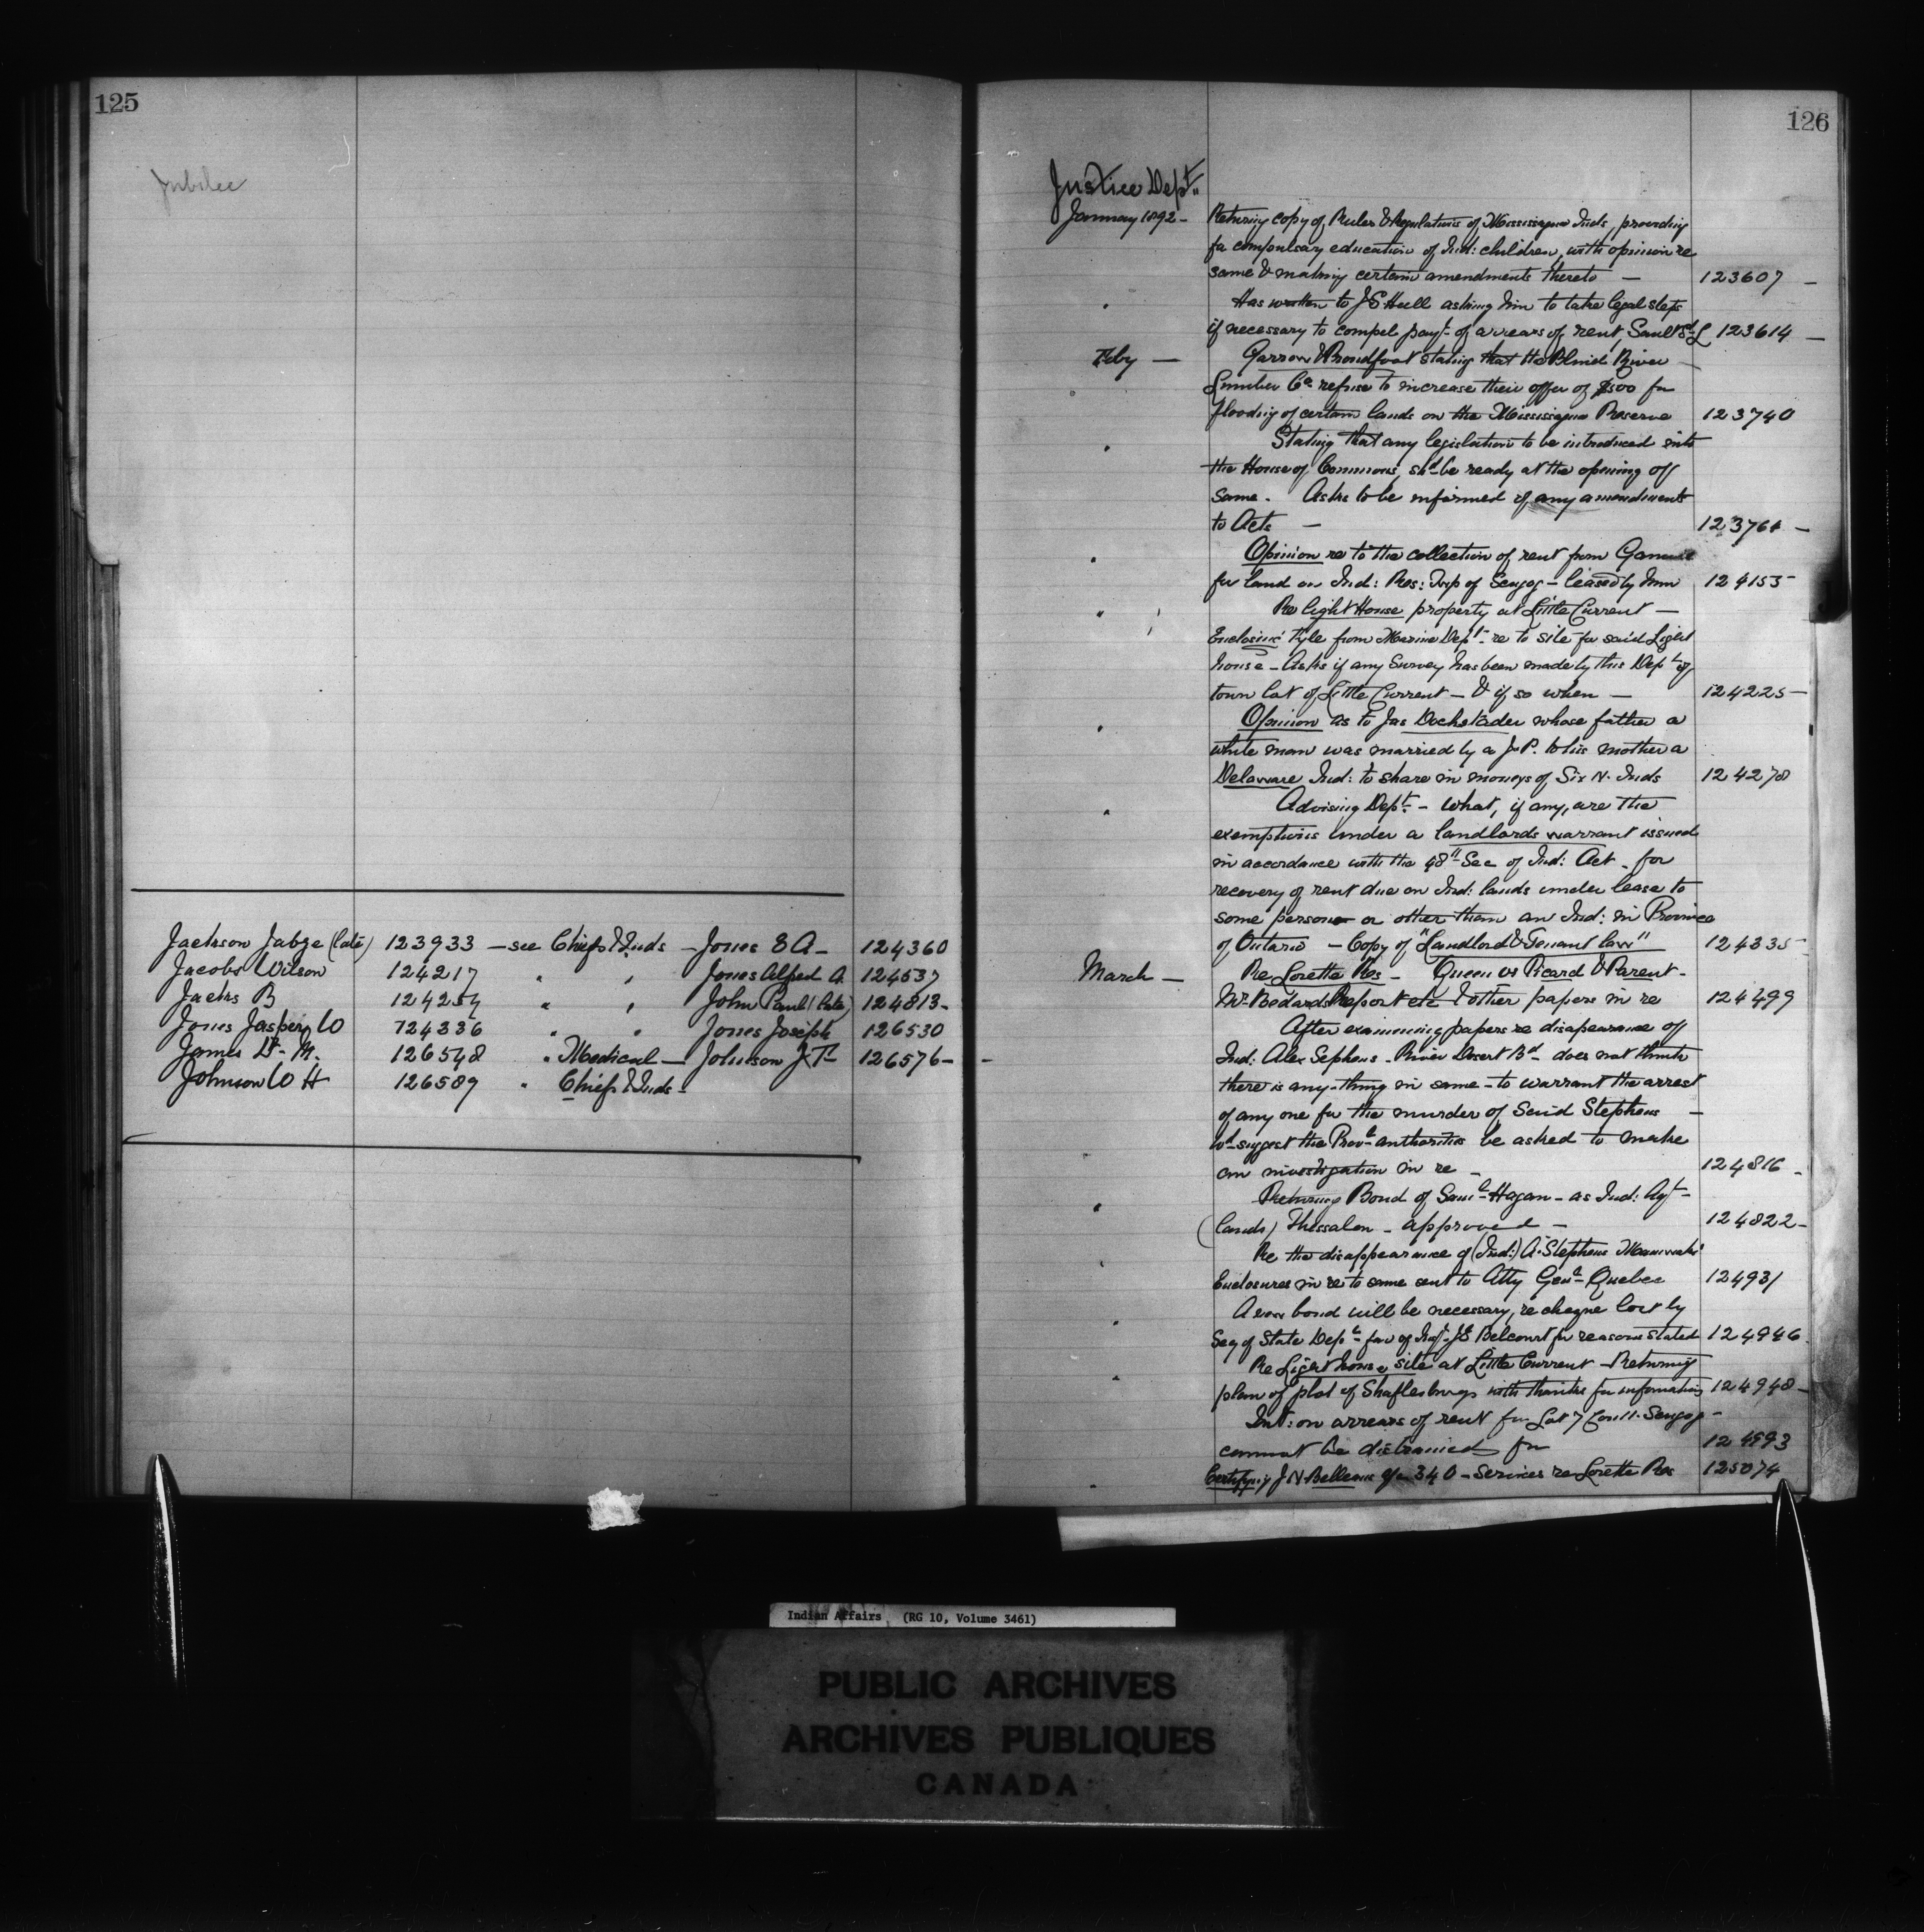 125
Jubilee
Jackson Jabze (late) 123933 — see Chiefs & Inds — Jones E A — 124360
Jacobs Wilson 124217 " " Jones Alfred A. 124537
Jacks B 124254 " " John Paul (late) 124813 —
Jones Jasper W 124336 " " Jones Joseph 126530
James Dr. M. 126548 " Medical — Johnson J. T 126576 —
Johnson W H 126589 " Chiefs & Inds —
126
Justice Dept.
January 1892 — Returning copy of Rules & Regulations of Mississagua Inds, providing
for compulsary education of Ind: children, with opinion re
same & making certain amendments thereto — 123607 —
" Has written to J S Hull asking him to take legal steps
if necessary to compel payt. of arrears of rent, Sault St. 123614 —
Feby — Garrow & Proudfoot stating that the Blind River
Lumber Co. refuse to increase their offer of $500 for
flooding of certain lands on the Mississagua Reserve 123740
" Stating that any legislation to be introduced into
the House of Commons shd. be ready at the opening of
same. Asks to be informed if any amendments
to Acts — 123761 —
" Opinion re to the collection of rent from
for land on Ind: Res: Twp of Scugog — leased by him 124153
" Re Light House property at Little Current —
from Marine Dept. re to site for said Light
house — Asks if any Survey has been made by this Dept. of
town lot of Little Current — & if so when — 124225 —
" Opinion as to Jas Dockstader whose father a
white man was married by a J. P. to his mother a
Delaware Ind: to share in moneys of Six N. Inds 124278
" Advising Dept. — what, if any, are the
exemptions under a landlords warrant issued
in accordance with the 48th Sec of Ind: Act. for
recovery of rent due on Ind: lands under lease to
some person or other than an Ind: in Province
of Ontario — Copy of "Landlord & Tenant law" 124335
March — Re Lorette Res — Queen vs Picard & Parent —
Mr. Bedards Report etc & other papers in re 124499
After examining papers re disapearance of
Ind: Alex Sephens — River Desert Bd — does not think
there is any-thing in same — to warrant the arrest
of any one for the murder of said Stephens —
wd. suggest the Provl. authorities be asked to make
an investigation in re — 124816 —
" Returning Bond of Saml. Hagan — as Ind: Agt —
(lands) Thessalon — approved — 124822 —
" Re the disappearance of (Ind:) A. Stephens Maniwaki
Enclosures in re to same sent to Atty Genl. Quebec 124931
" A new bond will be necessary, re cheque lost by
Secy of State Dept. fav of J E Belcourt for reasons stated 124946
" Re Light house site at Little Current — Returning
plan of plot of Shaftesbury with thanks for information 124948 —
Int: on arrears of rent for Lot 7 Con 11. Scugog —
cannot be distrained for 124993
" Certifying J N Belleau a/c 340 — Services re Lorette Res 125074
Indian Affairs (RG 10, Volume 3461)
PUBLIC ARCHIVES
ARCHIVES PUBLIQUES
CANADA